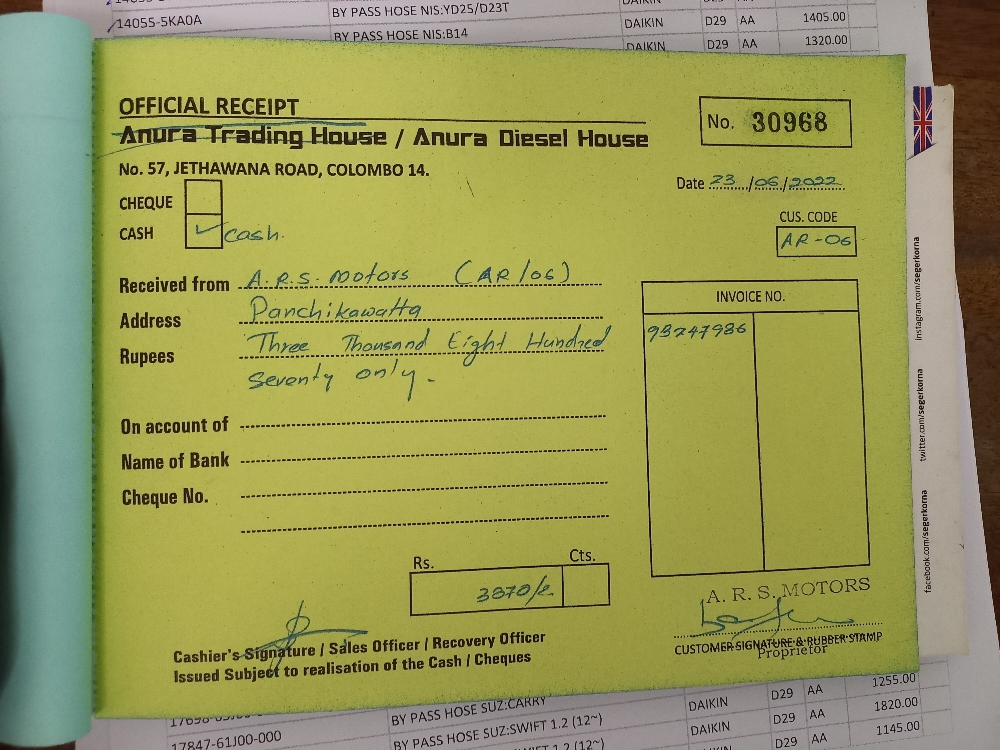 14055-5KA0A BY PASS HOSE NIS:YD25/D23T DAIKIN D29 AA 1405.00
BY PASS HOSE NIS:B14 DAIKIN D29 AA 1320.00
OFFICIAL RECEIPT
Anura Trading House / Anura Diesel House
No. 30968
No. 57, JETHAWANA ROAD, COLOMBO 14.
Date 23/06/2022
CHEQUE
CASH ✓ cash.
CUS. CODE
AR-06
Received from A.R.S. Motors (AR/06)
Address Panchikawatta
Rupees Three Thousand Eight Hundred
Seventy only.
INVOICE NO.
93247936
On account of
Name of Bank
Cheque No.
Rs. Cts.
3870/=
A. R. S. MOTORS
CUSTOMER SIGNATURE & RUBBER STAMP
Proprietor
Cashier's Signature / Sales Officer / Recovery Officer
Issued Subject to realisation of the Cash / Cheques
instagram.com/segerkorna
twitter.com/segerkorna
facebook.com/segerkorna
BY PASS HOSE SUZ:CARRY DAIKIN D29 AA 1255.00
17847-61J00-000 BY PASS HOSE SUZ:SWIFT 1.2 (12~) DAIKIN D29 AA 1820.00
1.2 (12~) DAIKIN D29 AA 1145.00